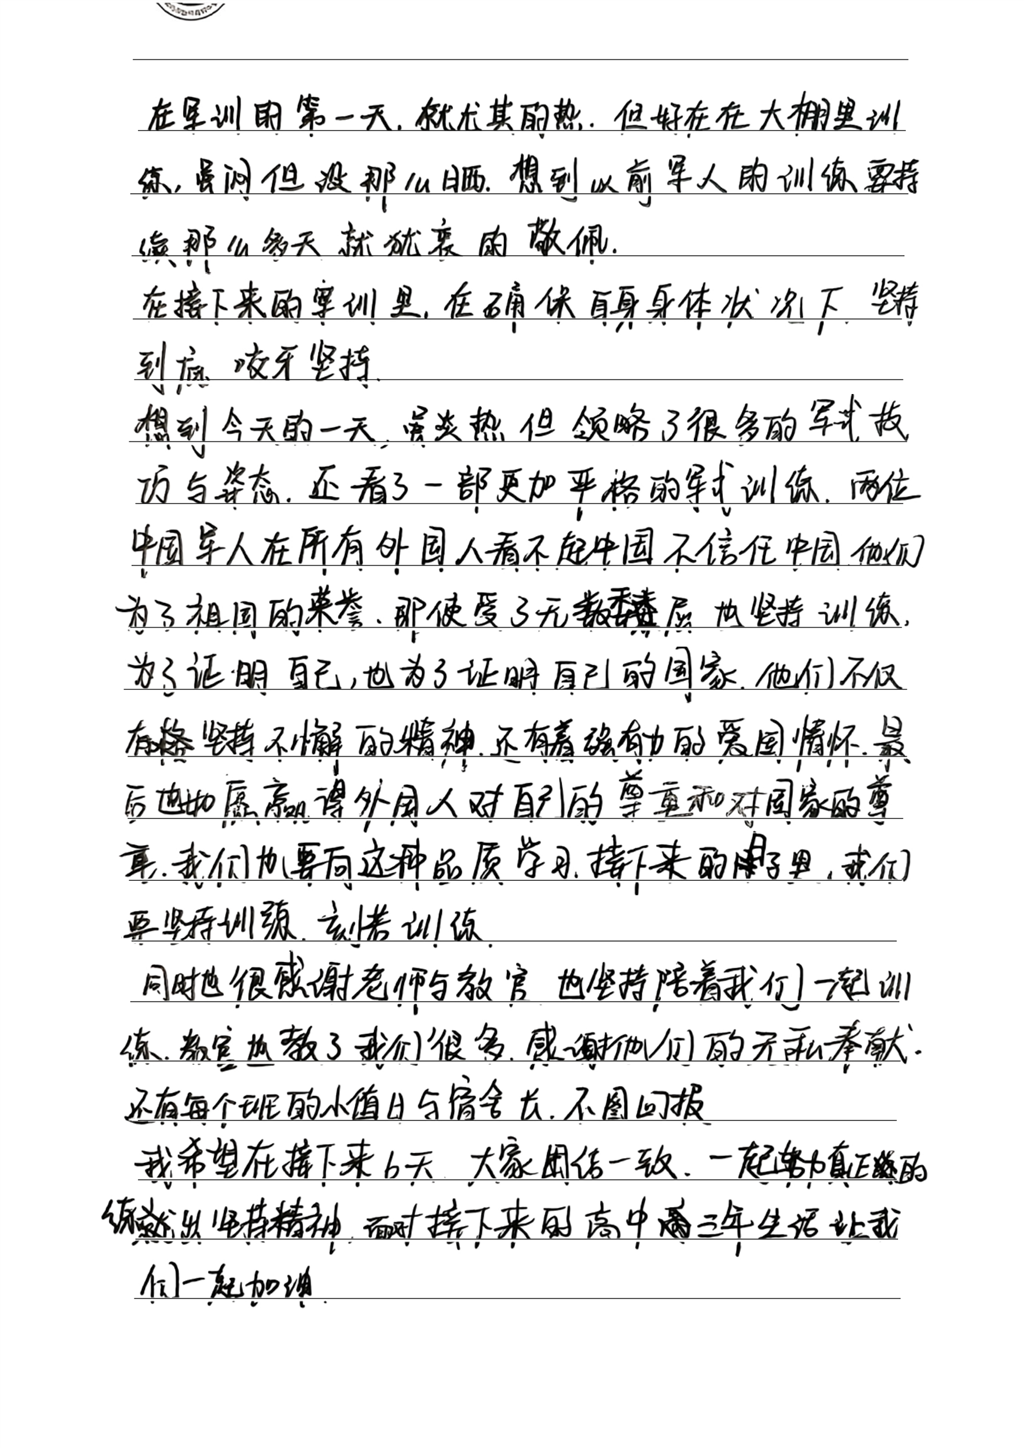 在军训的第一天，就尤其的热．但好在在大棚里训
练，虽闷但没那么晒．想到以前军人的训练要持
续那么多天就犹衷的敬佩．
在接下来的军训里，在确保自身身体状况下 坚持
到底 咬牙坚持．
想到今天的一天，虽炎热但领略了很多的军式技
巧与姿态．还看了一部更加严格的军式训练．两位
中国军人在所有外国人看不起中国不信任中国 他们
为了祖国的荣誉．那使受了无数委屈也坚持训练，
为了证明自己，也为了证明自己的国家．他们不仅
有坚持不懈的精神．还有着强有力的爱国情怀．最
后也赢得外国人对自己的尊重和对国家的尊
重．我们也要向这种品质学习．接下来的日子里，我们
要坚持训练．刻苦训练．
同时也很感谢老师与教官 也坚持陪着我们一起训
练．教官也教了我们很多．感谢他们的无私奉献．
还有每个班的小值日与宿舍长．不图回报
我希望在接下来6天．大家团结一致．一起努力真正的
练出坚持精神．面对接下来的高中三年生活 让我
们一起加油．